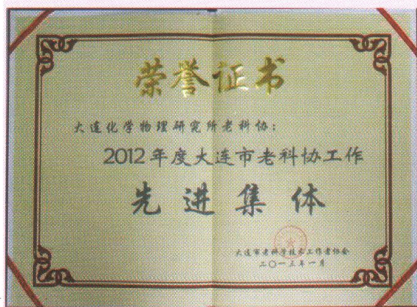 荣誉证书
大连化学物理研究所老科协：
2012年度大连市老科协工作
先进集体
大连市老科学技术工作者协会
二〇一三年一月